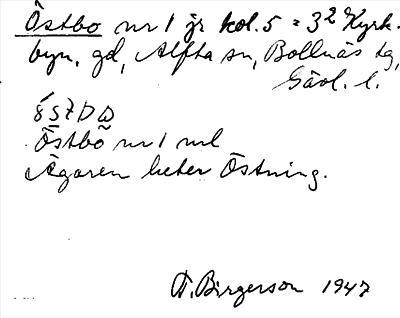 Östbo nr 1 jr kol. 5 = 3² Kyrk-
byn, gd, Alfta sn, Bollnäs tg,
Gävl. l.
Östbo nr 1 ml
Ägaren heter Östning.
T. Birgerson 1947